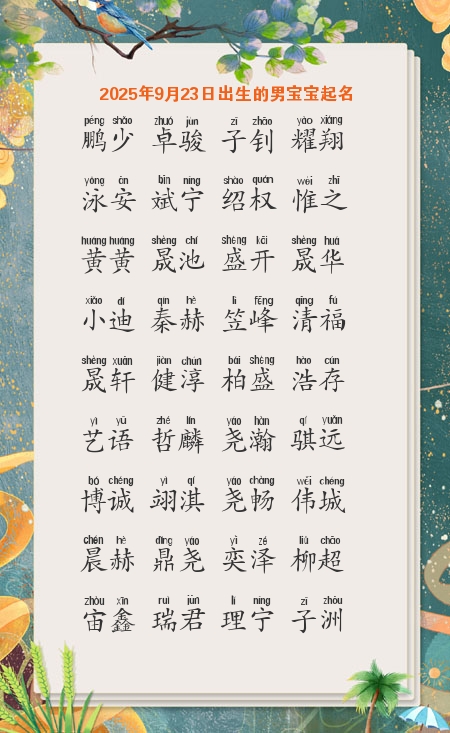 2025年9月23日出生的男宝宝起名
péng shǎo zhuó jùn zī zhāo yào xiáng
鹏少 卓骏 子钊 耀翔
yǒng ān bīn níng shào quán wéi zhī
泳安 斌宁 绍权 惟之
huáng huáng shèng chí shèng kāi shèng huá
黄黄 晟池 盛开 晟华
xiǎo dí qín hè lì fēng qīng fú
小迪 秦赫 笠峰 清福
shèng xuān jiàn chún bǎi shèng hào cún
晟轩 健淳 柏盛 浩存
yì yǔ zhé lín yáo hàn qí yuǎn
艺语 哲麟 尧瀚 骐远
bó chéng yì qí yáo chàng wěi chéng
博诚 翊淇 尧畅 伟城
chén hè dǐng yáo yì zé liǔ chāo
晨赫 鼎尧 奕泽 柳超
zhòu xīn ruì jūn lǐ níng zī zhōu
宙鑫 瑞君 理宁 子洲